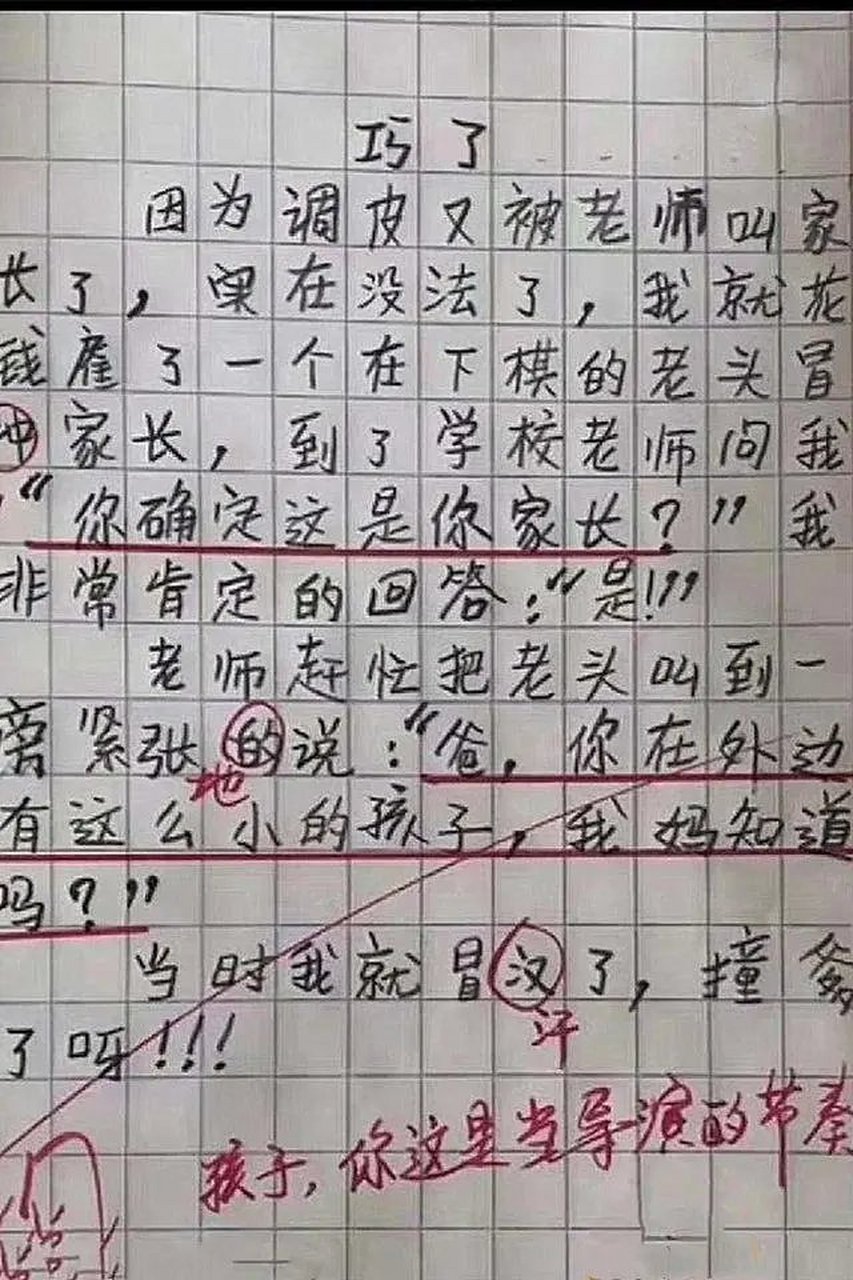 巧了
因为调皮又被老师叫家
长了，实在没法了，我就花
钱雇了一个在下棋的老头冒
冲家长，到了学校老师问我
："你确定这是你家长？"我
非常肯定的回答："是!"
老师赶忙把老头叫到一
旁紧张的说："爸，你在外边
地
有这么小的孩子，我妈知道
吗？"
当时我就冒汉了，撞爹
汗
了呀!!!
孩子，你这是当导演的节奏